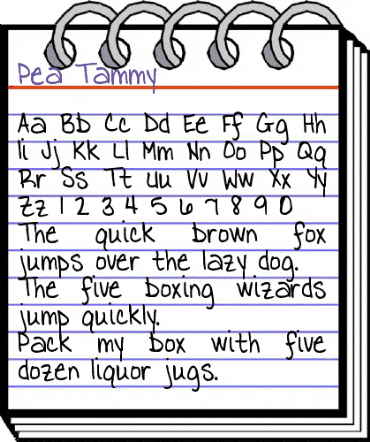 Pea Tammy
Aa Bb Cc Dd Ee Ff Gg Hh
Ii Jj Kk Ll Mm Nn Oo Pp Qq
Rr Ss Tt Uu Vv Ww Xx Yy
Zz 1 2 3 4 5 6 7 8 9 0
The quick brown fox
jumps over the lazy dog.
The five boxing wizards
jump quickly.
Pack my box with five
dozen liquor jugs.